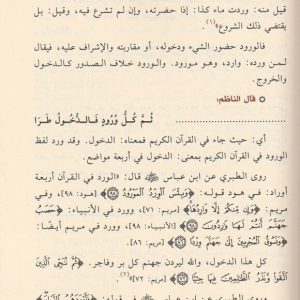 قيل منه: وردت ماء كذا: إذا حضرته، وإن لم تشرع فيه، وقيل: بل
يقتضي ذلك الشروع»(١).
فالورود حضور الشيء ودخوله، أو مقاربته والإشراف عليه، فيقال
لمن ورده: وارد، وهو مورود. والورود خلاف الصدور كالدخول
والخروج.
قال الناظم:
ثُمَّ كُلُّ وُرُودٍ فَالدُّخُولُ طَرَا
أي: حيث جاء في القرآن الكريم فمعناه: الدخول. وقد ورد لفظ
الورود في القرآن الكريم بمعنى: الدخول في أربعة مواضع.
روى الطبري عن ابن عباس: الورود في القرآن أربعة
أوراد: في هود قوله: ﴿وَبِئْسَ الْوِرْدُ الْمَوْرُودُ﴾ [هود: ٩٨]، وفي
مريم: ﴿وَإِن مِّنكُمْ إِلَّا وَارِدُهَا﴾ [مريم: ٧١]، وورد في الأنبياء: ﴿حَصَبُ
جَهَنَّمَ أَنتُمْ لَهَا وَارِدُونَ﴾ [الأنبياء: ٩٨]، وورد في مريم أيضًا:
﴿وَنَسُوقُ الْمُجْرِمِينَ إِلَىٰ جَهَنَّمَ وِرْدًا﴾ [مريم: ٨٦].
كل هذا الدخول، والله ليردن جهنم كل بر وفاجر. ﴿ثُمَّ نُنَجِّي الَّذِينَ
اتَّقَوا وَّنَذَرُ الظَّالِمِينَ فِيهَا جِثِيًّا﴾ [مريم: ٧٢](٢).